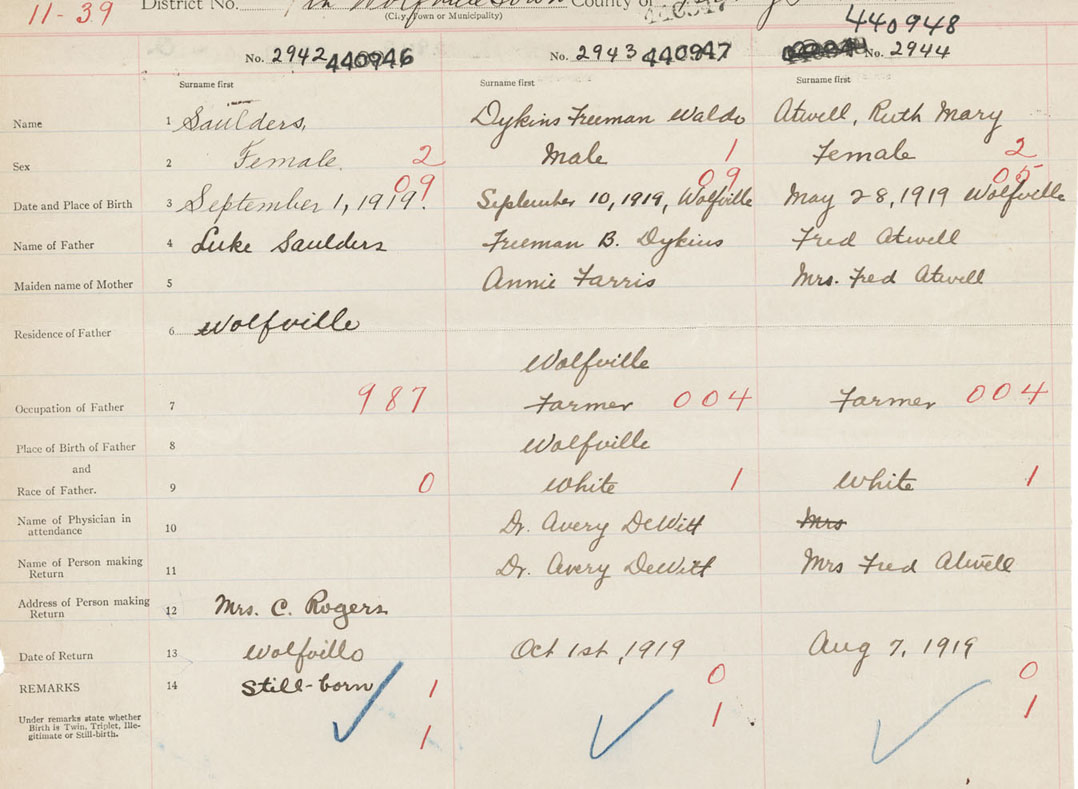 11-39 District No. Wolfville Town County of
(City, Town or Municipality)
440948
No. 2942 440946 No. 2943 440947 No. 2944
Surname first Surname first Surname first
Name 1 Saulders, Dykins Freeman Waldo Atwell, Ruth Mary
Sex 2 Female. 2 Male 1 Female 2
09 09 05
Date and Place of Birth 3 September 1, 1919. September 10, 1919, Wolfville May 28, 1919 Wolfville
Name of Father 4 Luke Saulders Freeman B. Dykins Fred Atwell
Maiden name of Mother 5 Annie Farris Mrs. Fred Atwell
Residence of Father 6 Wolfville
Wolfville
Occupation of Father 7 987 Farmer 004 Farmer 004
Place of Birth of Father 8 Wolfville
and
Race of Father. 9 0 White 1 White 1
Name of Physician in
attendance 10 Dr. Avery DeWitt Mrs
Name of Person making
Return 11 Dr. Avery DeWitt Mrs Fred Atwell
Address of Person making
Return 12 Mrs. C. Rogers
Date of Return 13 Wolfville Oct 1st, 1919 Aug 7, 1919
REMARKS 14 Still-born 1 0 0
Under remarks state whether
Birth is Twin, Triplet, Ille-
gitimate or Still-birth.
1 1 1